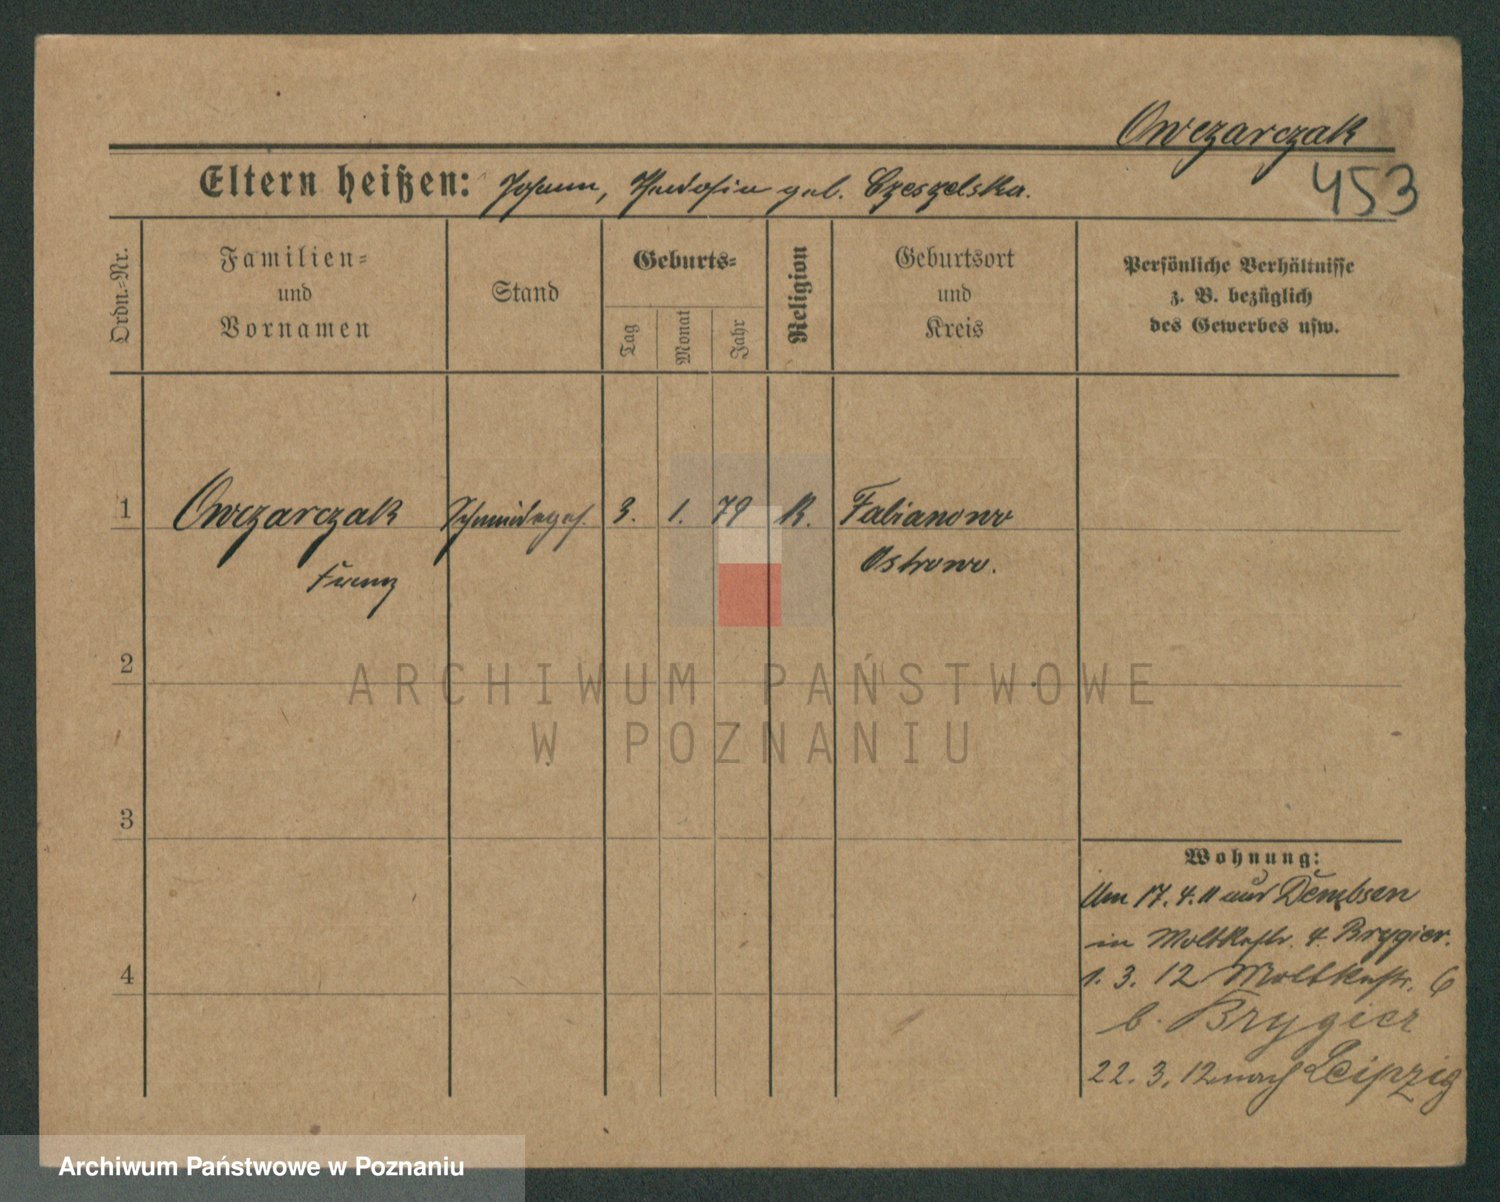 Owczarczak
453
Eltern heißen: Johann, geb. Czeszelska.
Ordn.=Nr.
Familien=
und
Vornamen
Stand
Geburts=
Tag
Monat
Jahr
Religion
Geburtsort
und
Kreis
Persönliche Verhältnisse
z. B. bezüglich
des Gewerbes usw.
1 Owczarczak Schmiedeges. 3. 1. 79 K. Fabianowo
Franz Ostrowo.
2
3
4
Wohnung:
Am 17. 4. 11 aus Dembsen
in Moltkestr. 4. Brygier.
1. 3. 12 Moltkestr. 6
b. Brygier
22. 3. 12 nach Leipzig
ARCHIWUM PAŃSTWOWE
W POZNANIU
Archiwum Państwowe w Poznaniu